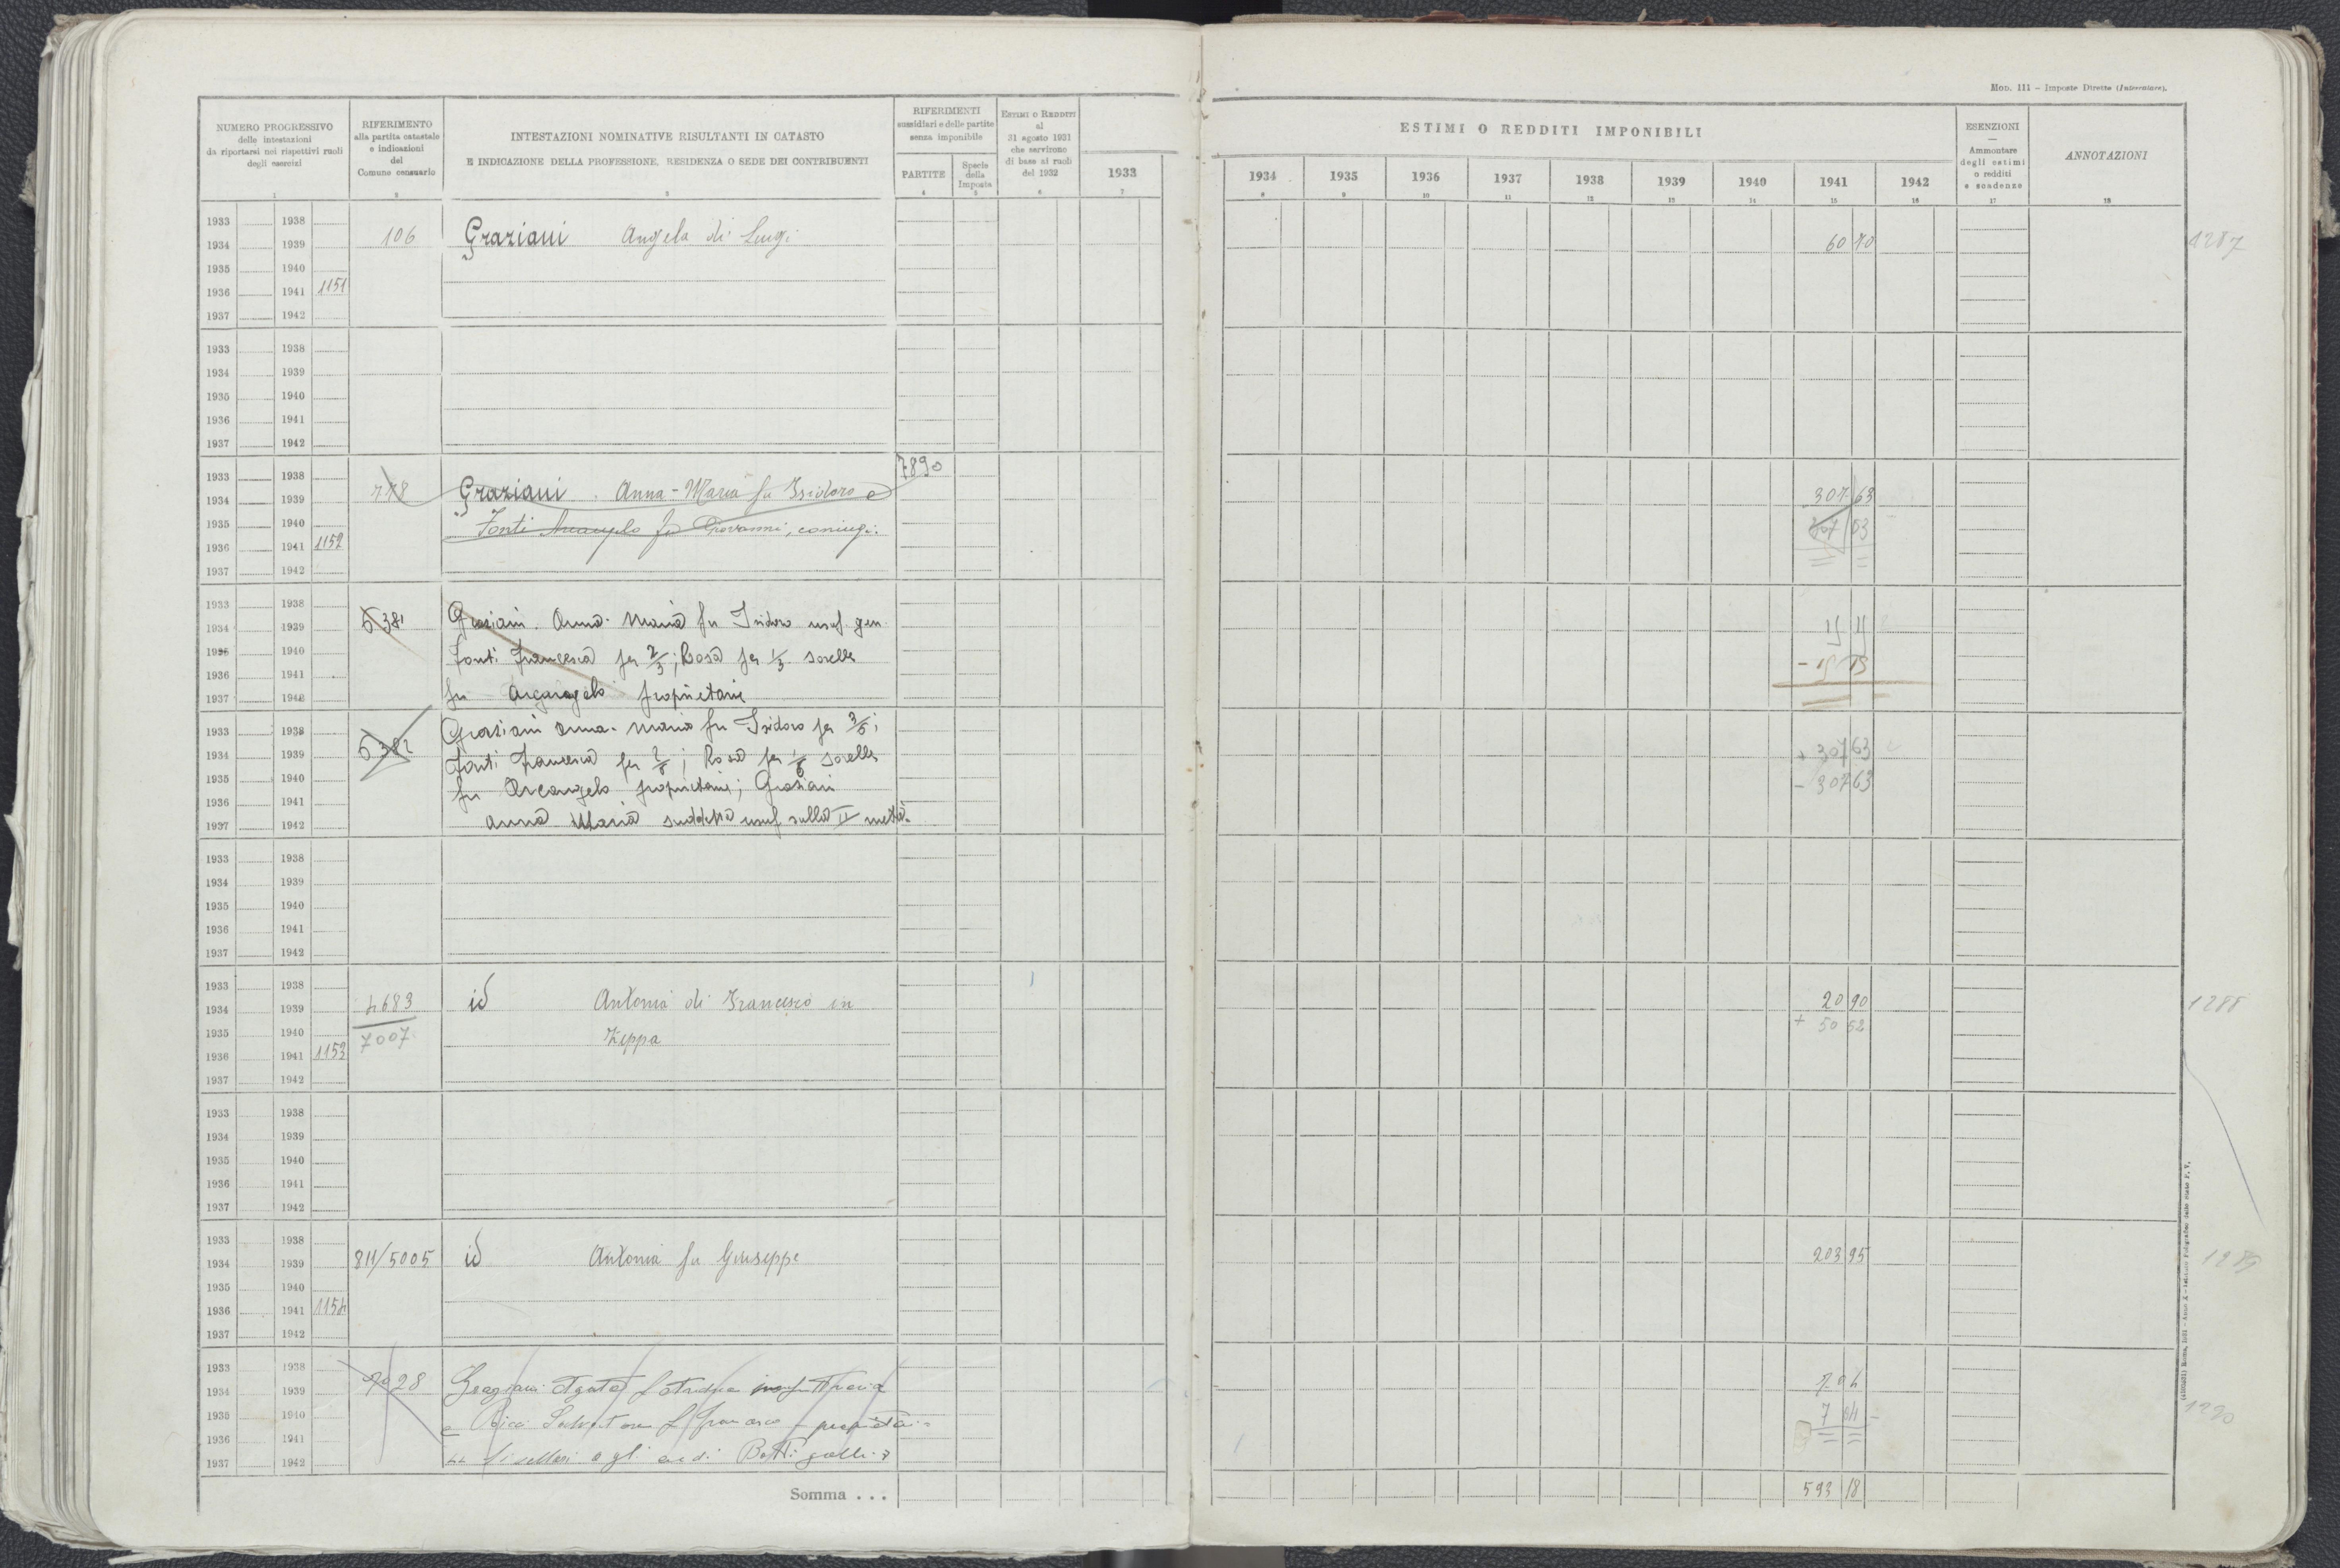 Mod. 111 – Imposte Dirette (Intercalare).
NUMERO PROGRESSIVO
delle intestazioni
da riportarsi nei rispettivi ruoli
degli esercizi
1
RIFERIMENTO
alla partita catastale
e indicazioni
del
Comune censuario
2
INTESTAZIONI NOMINATIVE RISULTANTI IN CATASTO
E INDICAZIONE DELLA PROFESSIONE, RESIDENZA O SEDE DEI CONTRIBUENTI
3
RIFERIMENTI
sussidiari e delle partite
senza imponibile
PARTITE
4
Specie
della
Imposta
5
Estimi o Redditi
al
31 agosto 1931
che servirono
di base ai ruoli
del 1932
6
ESTIMI O REDDITI IMPONIBILI
1933 1934 1935 1936 1937 1938 1939 1940 1941 1942
7 8 9 10 11 12 13 14 15 16
ESENZIONI
Ammontare
degli estimi
o redditi
e scadenze
17
ANNOTAZIONI
18
1933 1938
1934 1939 106 Graziani Angela di Luigi 60 70 1287
1935 1940
1936 1941 1151
1937 1942
1933 1938
1934 1939
1935 1940
1936 1941
1937 1942
1933 1938 7890
1934 1939 778 Graziani Anna-Maria fu Isidoro e 307 63
1935 1940 Fonti Arcangelo fu Giovanni, coniugi. 307 63
1936 1941 1152
1937 1942
1933 1938
1934 1939 6381 Graziani Anna-Maria fu Isidoro usuf. gen
1935 1940 Fonti Francesca per 2/3; Rosa per 1/3 sorelle
1936 1941
1937 1942 fu Arcangelo proprietarie
1933 1938 Graziani Anna-Maria fu Isidoro per 3/6;
1934 1939 6382 Fonti Francesca per 2/6; Rosa per 1/6 sorelle + 307 63
1935 1940 fu Arcangelo proprietarie; Graziani - 307 63
1936 1941
1937 1942 Anna Maria suddetta usuf. sulla II metà.
1933 1938
1934 1939
1935 1940
1936 1941
1937 1942
1933 1938
1934 1939 4683 id Antonia di Francesco in 20 90 1288
1935 1940 7007 Zeppa + 50 52
1936 1941 1153
1937 1942
1933 1938
1934 1939
1935 1940
1936 1941
1937 1942
1933 1938
1934 1939 811/5005 id Antonia fu Giuseppe 203 95 1289
1935 1940
1936 1941 1154
1937 1942
1933 1938
1934 1939 Graziani Agata 7 04
1935 1940 Salvatore 1290
1936 1941
1937 1942 livellari agli eredi
Somma . . . 593 18